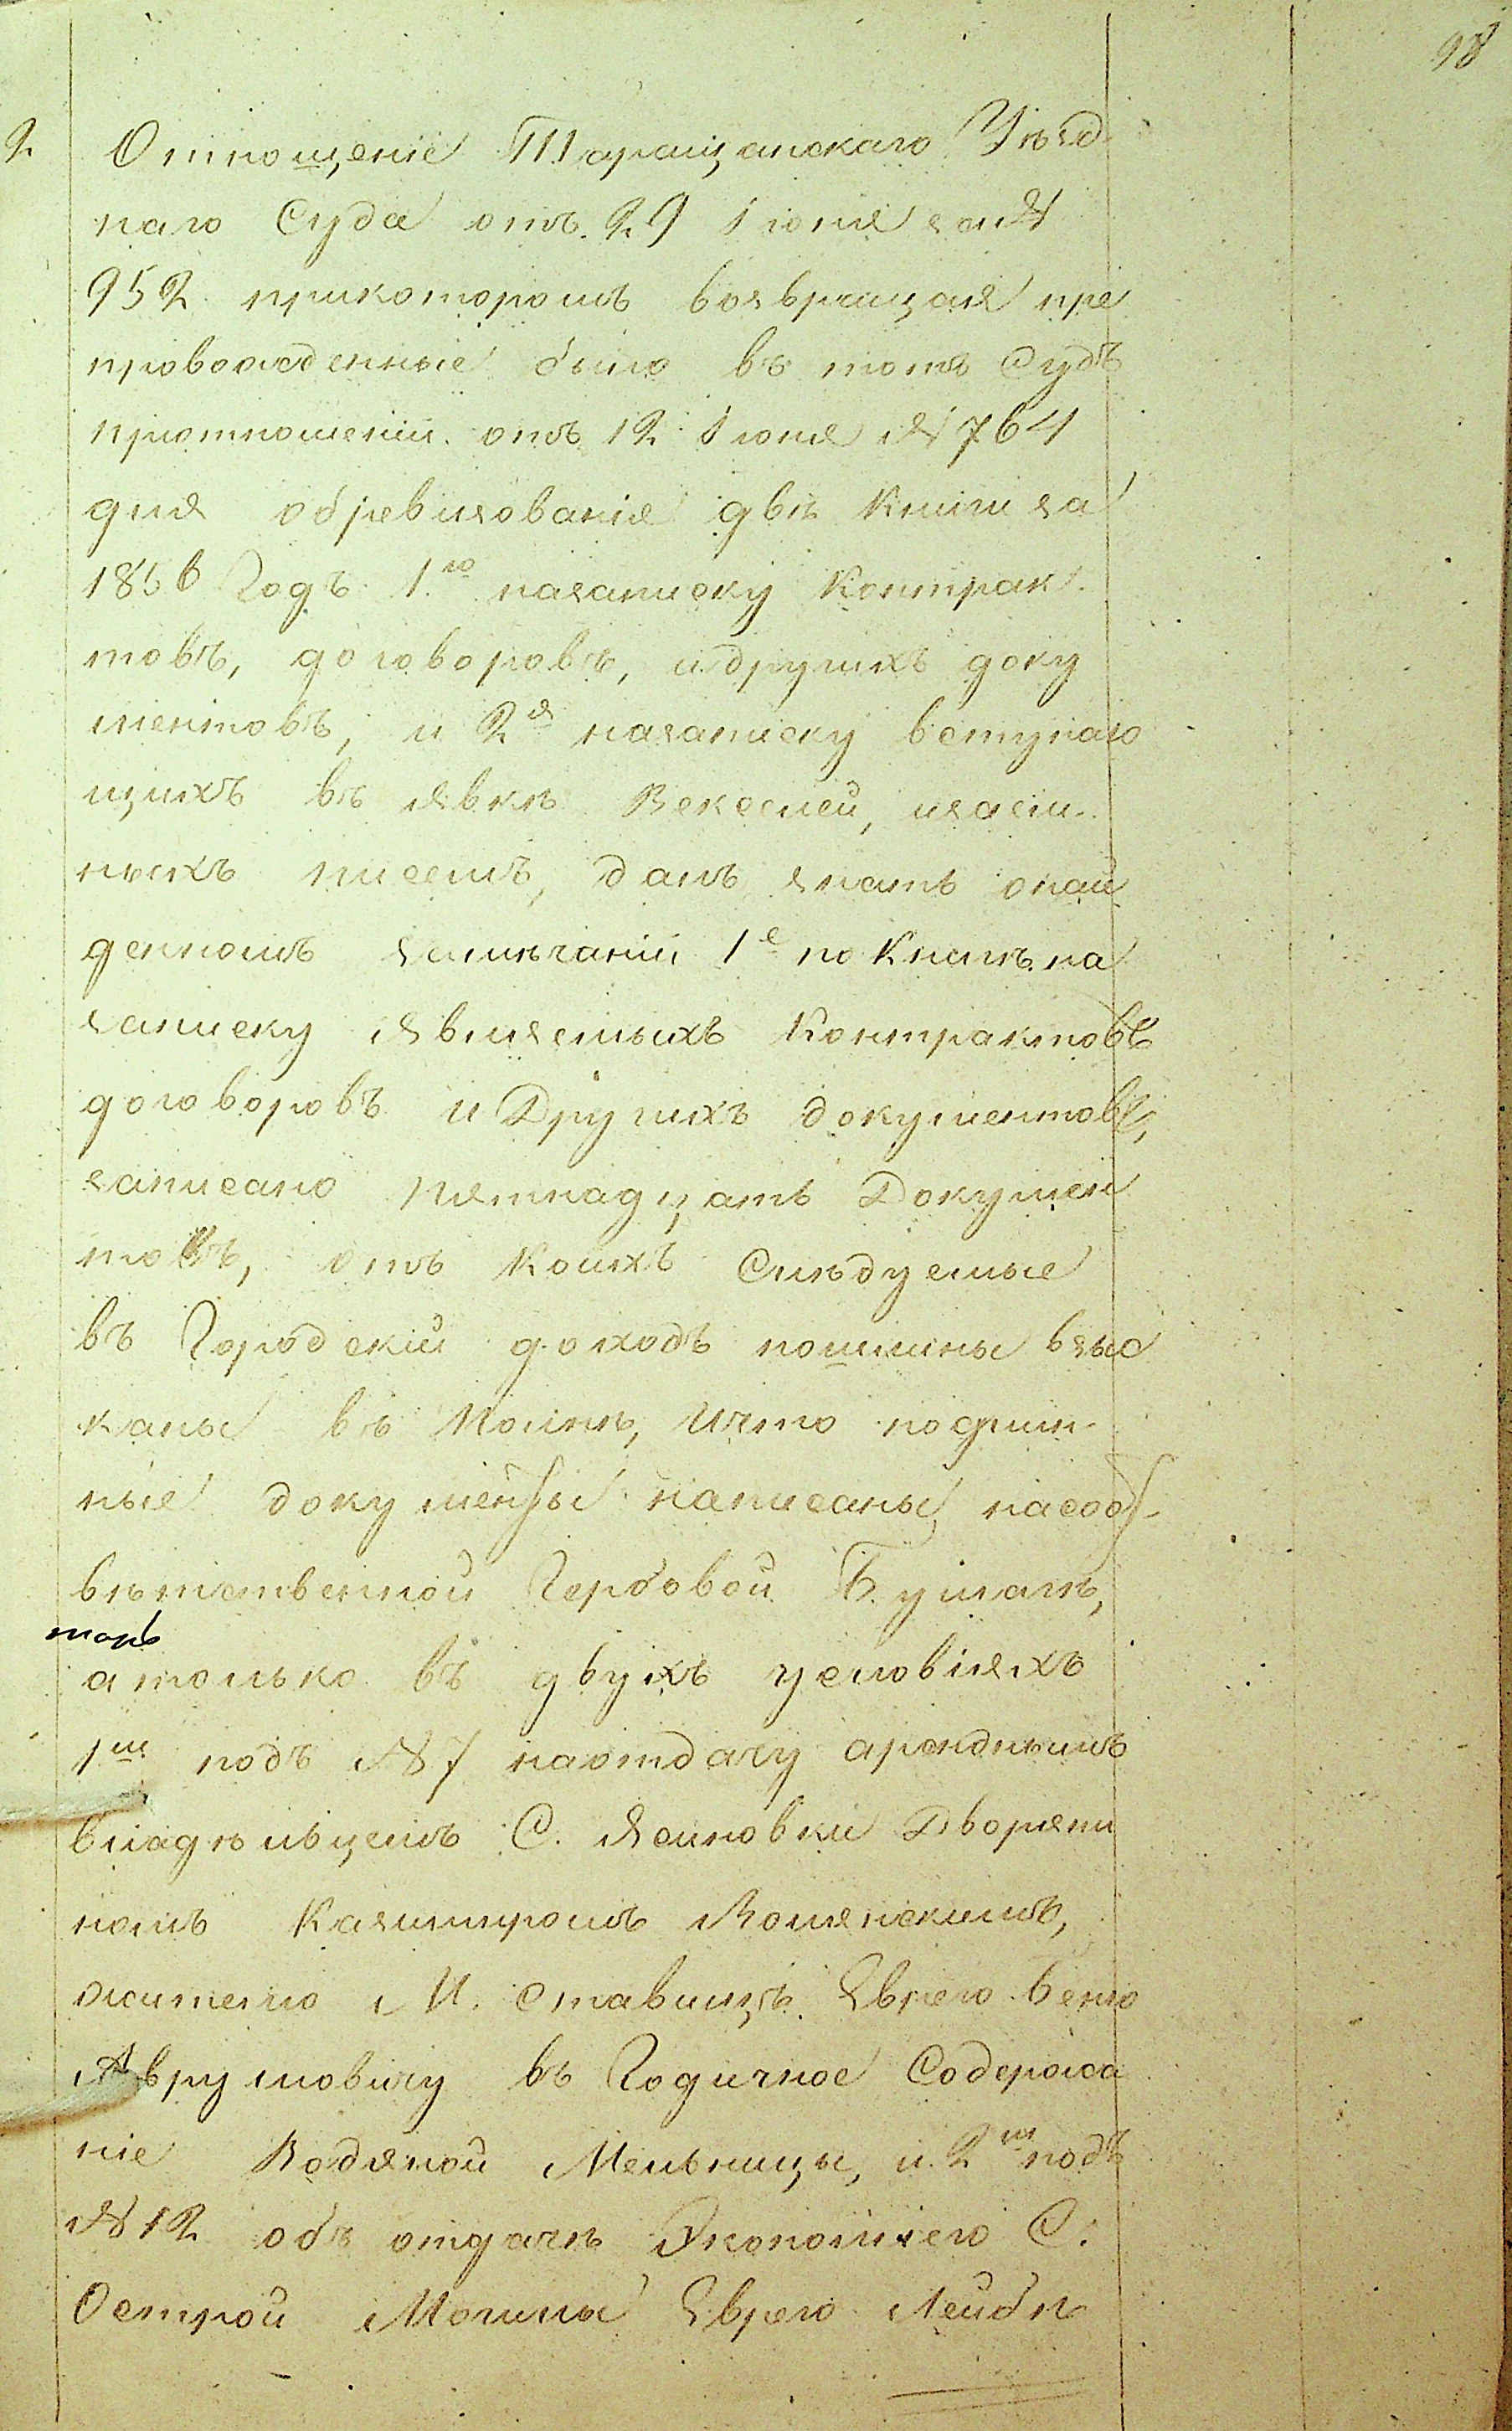 98
2. Отношеніе Таращанскаго Уѣзд
наго Суда отъ 29 Іюня за №
952 прикоторомъ возвращая пре
провожденные было въ тотъ Судъ
приотношеніи отъ 12 Іюня № 764
для обревизованія двѣ Книги за
1856 Годъ 1.ю назаписку Контрак
товъ, договоровъ, идругихъ доку
ментовъ, и 2я назаписку вступаю
щихъ въ явкѣ Векселей, изаем
ныхъ писемъ, далъ знать онай
денномъ замѣчаніи 1е по Книгѣ на
записку являемыхъ Контрактовъ
договоровъ и Другихъ документовъ,
записано пятнадцать Докумен
товъ, отъ коихъ Слѣдуемые
въ Городскій доходъ пошлины взыс
каны въ полнѣ, ичто подлин
ные документы написаны насоот
вѣтственной Гербовой Бумагѣ,
токъ
атолько въ двухъ условіяхъ
1мъ подъ № 7 наотдачу аренднымъ
владѣльцемъ С. Ясиновки Дворяни
номъ Казимиромъ Волянскимъ,
жителю М. Ставищъ Еврею Беню
Аврумовичу въ Годичное Содержа
ніе Водяной Мельницы, и 2мъ подъ
№ 12 объ отдачѣ Экономіею С.
Острой Могилы Еврею Лейбѣ